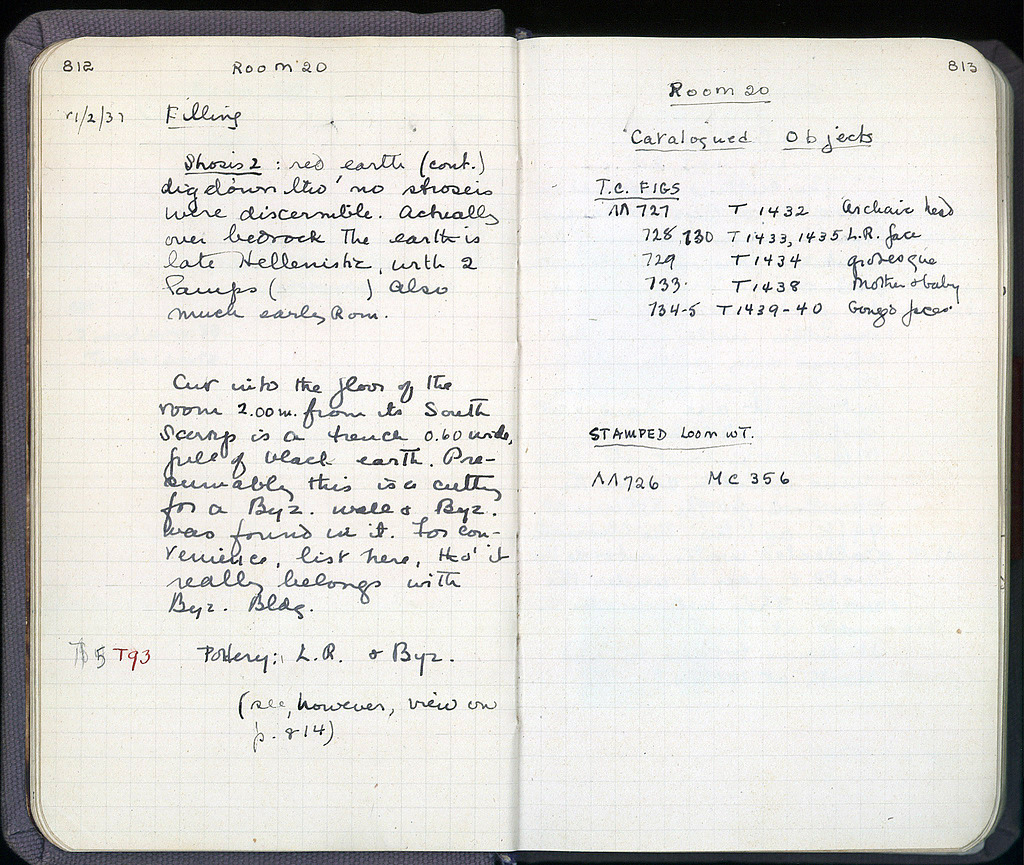 812 Room 20
11/2/37 Filling
Strosis 2 : red earth (cont.)
dig down tho' no stroseis
were discernible. Actually
over bedrock the earth is
late Hellenistic, with 2
lamps ( ) Also
much early Rom.
Cut into the floor of the
room 2.00 m. from its South
Scarp is a trench 0.60 wide,
full of black earth. Pre-
sumably this is a cutting
for a Byz. wall & Byz.
was found in it. For con-
venience, list here, tho' it
really belongs with
Byz. Bldg.
5 T93 Pottery: L.R. & Byz.
(see, however, view on
p. 814)
813
Room 20
Catalogued Objects
T.C. FIGS
ΛΛ 727 T 1432 Archaic head
728, 730 T 1433, 1435 L.R. face
729 T 1434 grotesque
733. T 1438 Mother & baby
734-5 T 1439-40 faces
STAMPED LOOM WT.
ΛΛ 726 MC 356